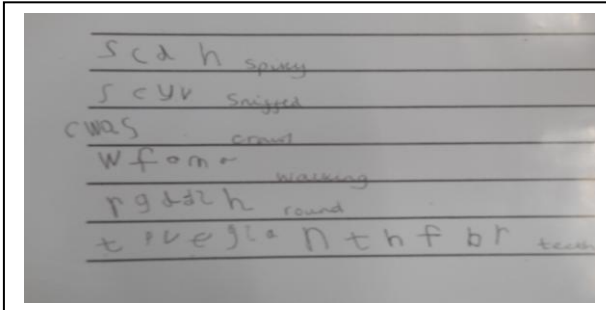 s c d h spikey
s c y v sniffed
cwas crawl
w f o m r walking
r g d d z h round
n t h f b r teeth